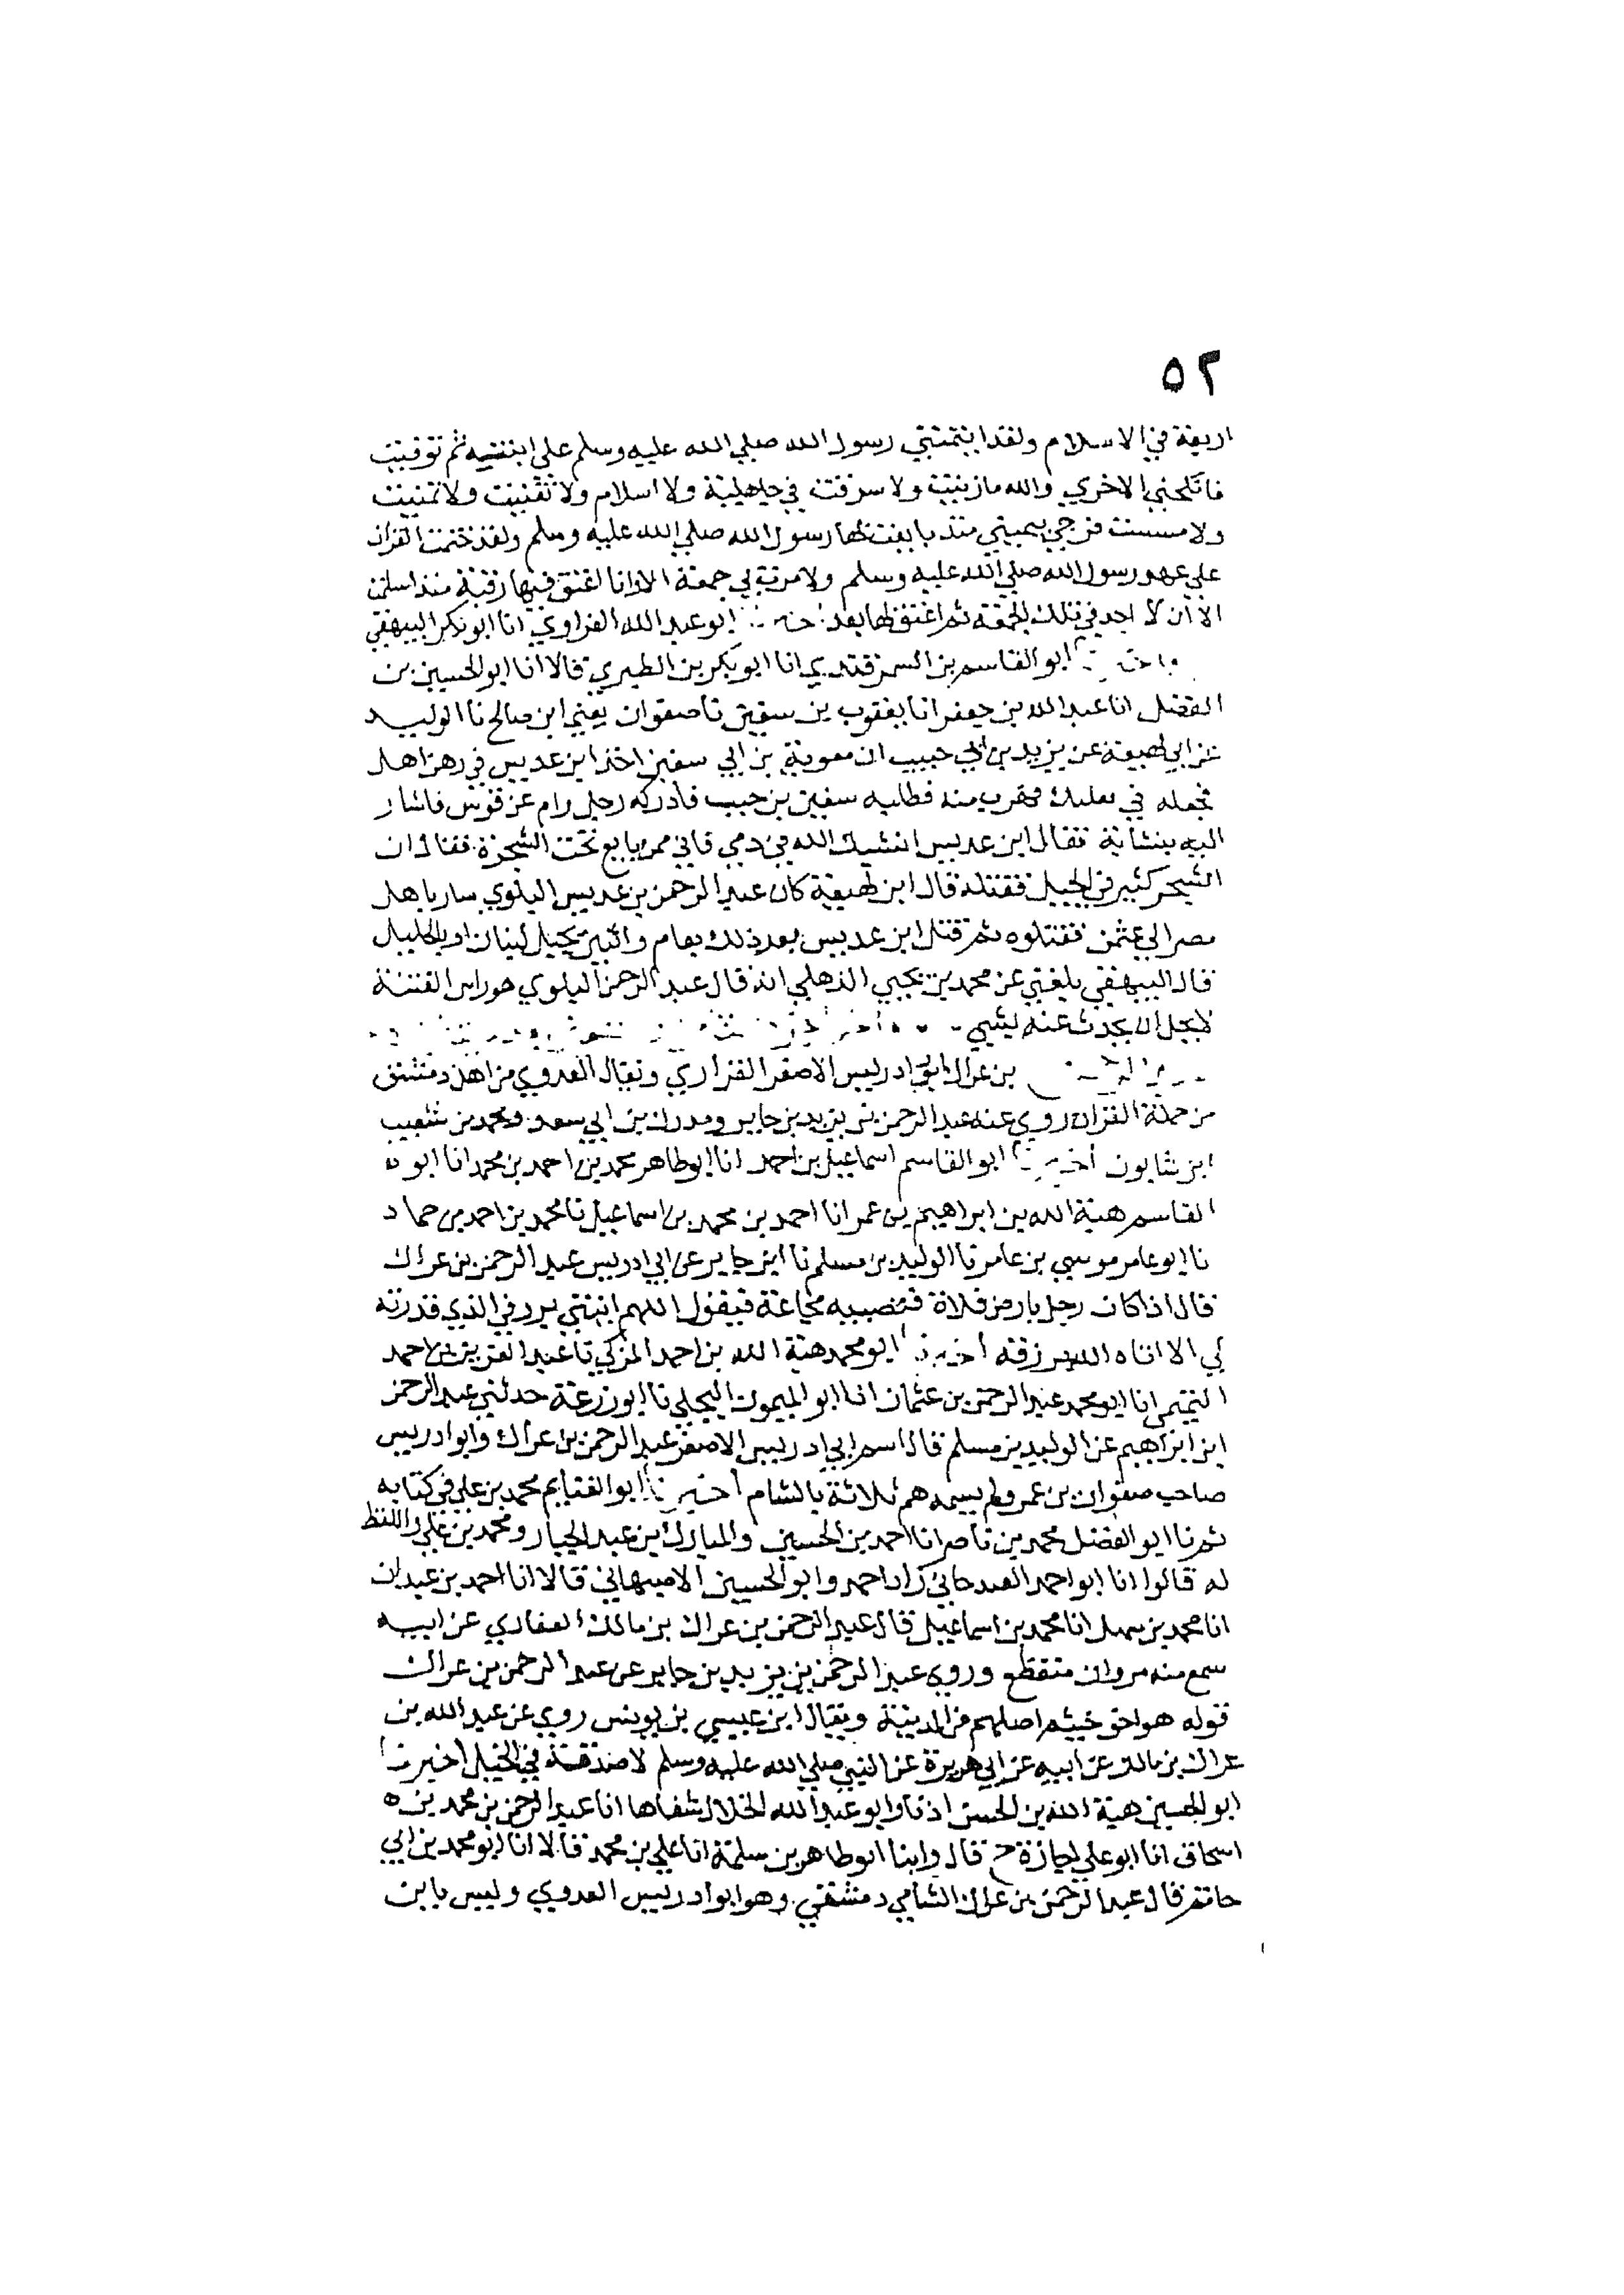 ٥٢
اربعة في الاسلام ولقد ايتمنني رسول الله صلي الله عليه وسلم علي ابنتيه ثم توفيت
فانكحني الاخري والله ما زنيت ولا سرقت في جاهلية ولا اسلام ولا تغنيت ولا تمنيت
ولا مسست فرجي بيميني منذ بايعت بها رسول الله صلي الله عليه وسلم ولقد ختمت القران
علي عهد رسول الله صلي الله عليه وسلم ولا مرت بي جمعة الا وانا اعتق فيها رقبة منذ اسلمت
الا ان لا اجد في تلك الجمعة ثم اعتق لها بعد ابو عبد الله الفراوي انا ابو بكر البيهقي
ابو القاسم بن السمرقندي انا ابو بكر بن الطبري قالا انا ابو الحسين بن
الفضل انا عبد الله بن جعفر انا يعقوب بن سفين نا صفوان يعني ابن صالح نا الوليد
عن ابي لهيعة عن يزيد بن ابي حبيب ان معوية بن ابي سفين اخذ ابن عديس في رهن اهل
فجعله في بعلبك فهرب منه فطلبه سفين بن حبيب فادركه رجل رام عن قوس فاشار
اليه بنشابة فقال ابن عديس انشدك الله في دمي فاني ممن بايع تحت الشجرة فقال ان
الشجر كثير في الجبل فقتله قال ابن لهيعة كان عبد الرحمن بن عديس البلوي سار باهل
مصر الي عثمن فقتلوه ثم قتل ابن عديس بعد ذلك بعام واثنين بجبل لبنان او بالجليل
قال البيهقي بلغني عن محمد بن يحيي الذهلي انه قال عبد الرحمن البلوي هو راس الفتنة
لا يحل ان يحدث عنه بشي
بن عراك ابو ادريس الاصغر الفزاري ويقال العدوي من اهل دمشق
من حملة القران روي عنه عبد الرحمن بن يزيد بن جابر ومدرك بن ابي سعد ومحمد بن شعيب
ابن شابون ابو القاسم اسماعيل بن احمد انا ابو طاهر محمد بن احمد بن محمد انا ابو
القاسم هبة الله بن ابراهيم بن عمر انا احمد بن محمد بن اسماعيل نا محمد بن احمد بن حماد
نا ابو عامر موسي بن عامر نا الوليد بن مسلم نا ابن جابر عن ابي ادريس عبد الرحمن بن عراك
قال اذا كان رجل بارض فلاة فتصيبه مجاعة فيقول اللهم ايتني برزقي الذي قدرته
لي الا اتاه الله برزقه ابو محمد هبة الله بن احمد المزكي نا عبد العزيز بن احمد
التيتمي انا ابو محمد عبد الرحمن بن عثمان انا ابو الميمون البجلي نا ابو زرعة حدثني عبد الرحمن
ابن ابراهيم عن الوليد بن مسلم قال اسم ابي ادريس الاصغر عبد الرحمن بن عراك وابو ادريس
صاحب صفوان بن عمرو لم يسمه هم ثلاثة بالشام اخبرنا ابو الغنايم محمد بن علي في كتابه
ثم نا ابو الفضل محمد بن ناصر انا احمد بن الحسين والمبارك بن عبد الجبار ومحمد بن علي واللفظ
له قالوا انا ابو احمد زاد احمد وابو الحسين الاصبهاني قالا انا احمد بن عبدان
انا محمد بن سهل انا محمد بن اسماعيل قال عبد الرحمن بن عراك بن مالك الغفاري عن ابيه
سمع منه مروان منقطع وروي عبد الرحمن بن يزيد بن جابر عن عبد الرحمن بن عراك
قوله هو اخو خيثم اصلهم من المدينة ويقال ابن عيسي بن يونس روي عن عبد الله بن
عراك بن مالك عن ابيه عن ابي هريرة عن النبي صلي الله عليه وسلم لا صدقة في الخيل اخبرنا
ابو الحسين هبة الله بن الحسن اذنا وابو عبد الله الخلال شفاها انا عبد الرحمن بن محمد بن
اسحاق انا ابو علي اجازة ح قال وابنا ابو طاهر بن سلمة انا علي بن محمد قالا انا ابو محمد بن ابي
حاتم قال عبد الرحمن بن عراك الشامي دمشقي وهو ابو ادريس العدوي وليس بابن